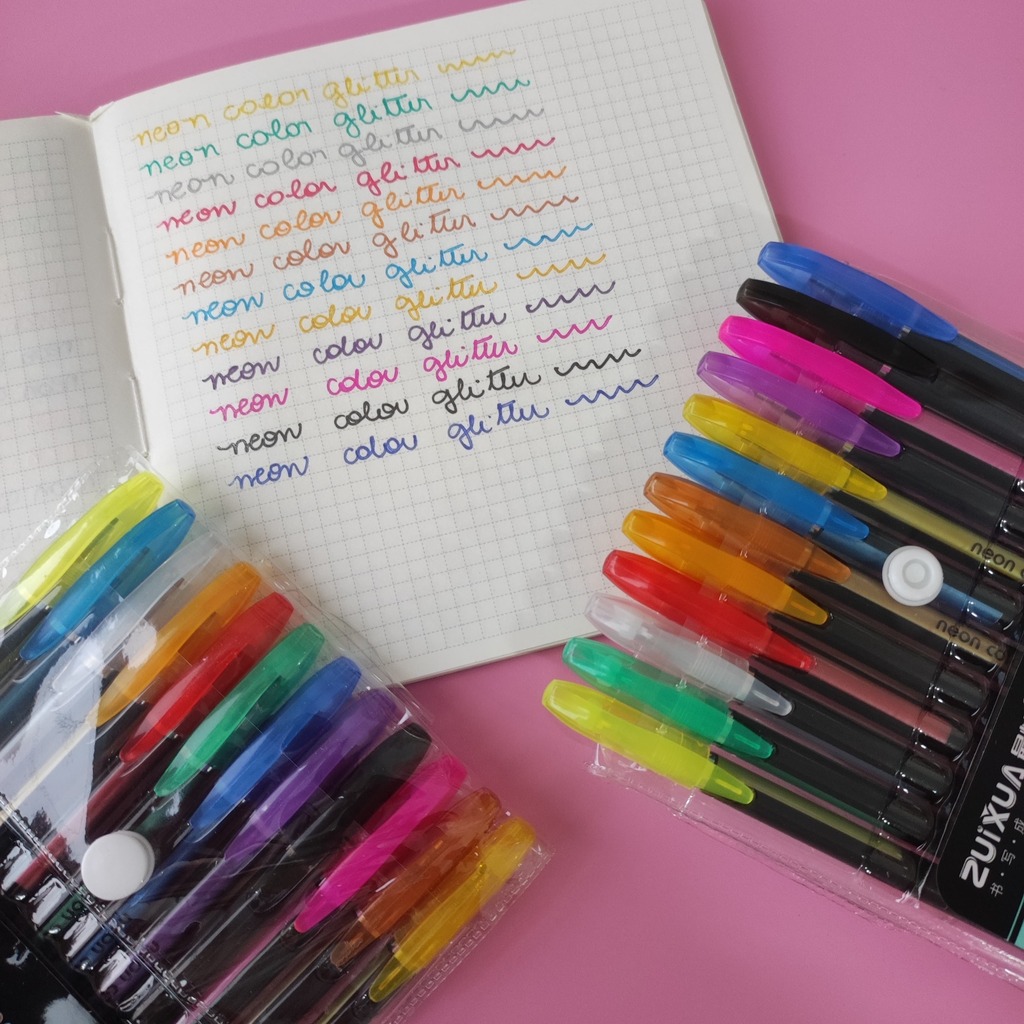 neon color glitter
neon color glitter
neon color glitter
neon color glitter
neon color glitter
neon color glitter
neon color glitter
neon color glitter
neon color glitter
neon color glitter
neon color glitter
neon color glitter
neon
neon co
ZUiXUA
书·写·成